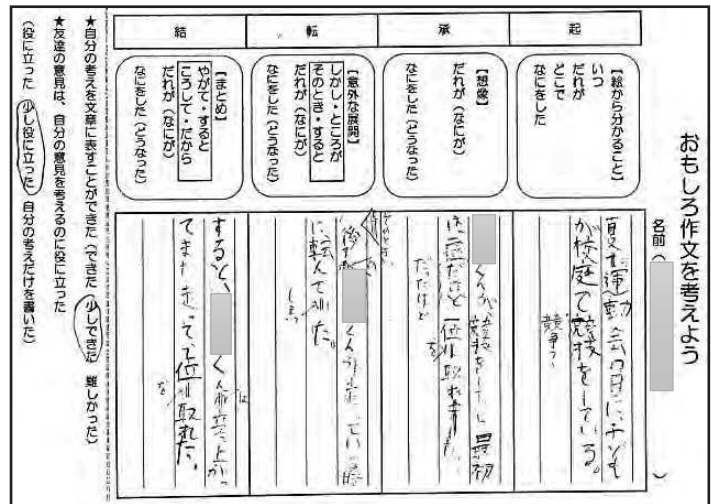 おもしろ作文を考えよう
名前（ ）
起
【絵から分かること】
いつ
だれが
どこで
なにをした
夏に運動会の日に子ども
が校庭で競技をしている。
競争
承
【想像】
だれが（なにが）
なにをした（どうなった）
くんが、競技をして最初
位
取れました
だけど
転
【意外な展開】
しかし・ところが
そのとき・すると
だれが（なにが）
なにをした（どうなった）
そのとき
後
くんが走っている時
に転んで
しまった
結
【まとめ】
やがて・すると
こうして・だから
だれが（なにが）
なにをした（どうなった）
すると、 くんが立ち上がっ
てまた走って一位が取れた。
は
を
★自分の考えを文章に表すことができた（できた 少しできた 難しかった）
★友達の意見は、自分の意見を考えるのに役に立った
（役に立った 少し役に立った 自分の考えだけを書いた）